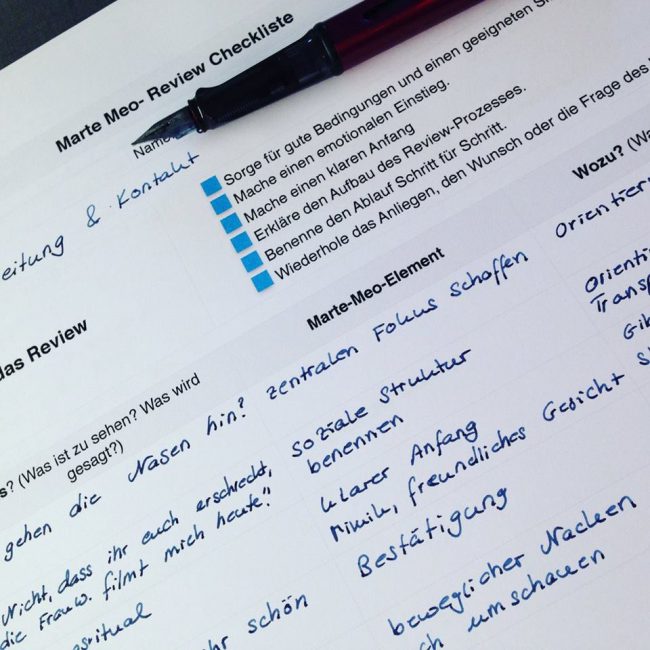 Marte Meo- Review Checkliste
Name
eitung & Kontakt
Sorge für gute Bedingungen und einen geeigneten
Mache einen emotionalen Einstieg.
Mache einen klaren Anfang
Erkläre den Aufbau des Review-Prozesses.
Benenne den Ablauf Schritt für Schritt.
Wiederhole das Anliegen, den Wunsch oder die Frage des
das Review
s? (Was ist zu sehen? Was wird
gesagt?)
Marte-Meo-Element
Wozu? (Wa
gehen die Nasen hin?
zentralen Fokus schaffen
Orientier
Nicht, dass ihr euch erschreckt,
die Frau W. filmt mich heute!"
soziale Struktur
benennen
Orienti
Transp
klarer Anfang
Gib
Mimik, freundliches Gesicht
sritual
Bestätigung
hr schön
beweglicher Nacken
ch umschauen